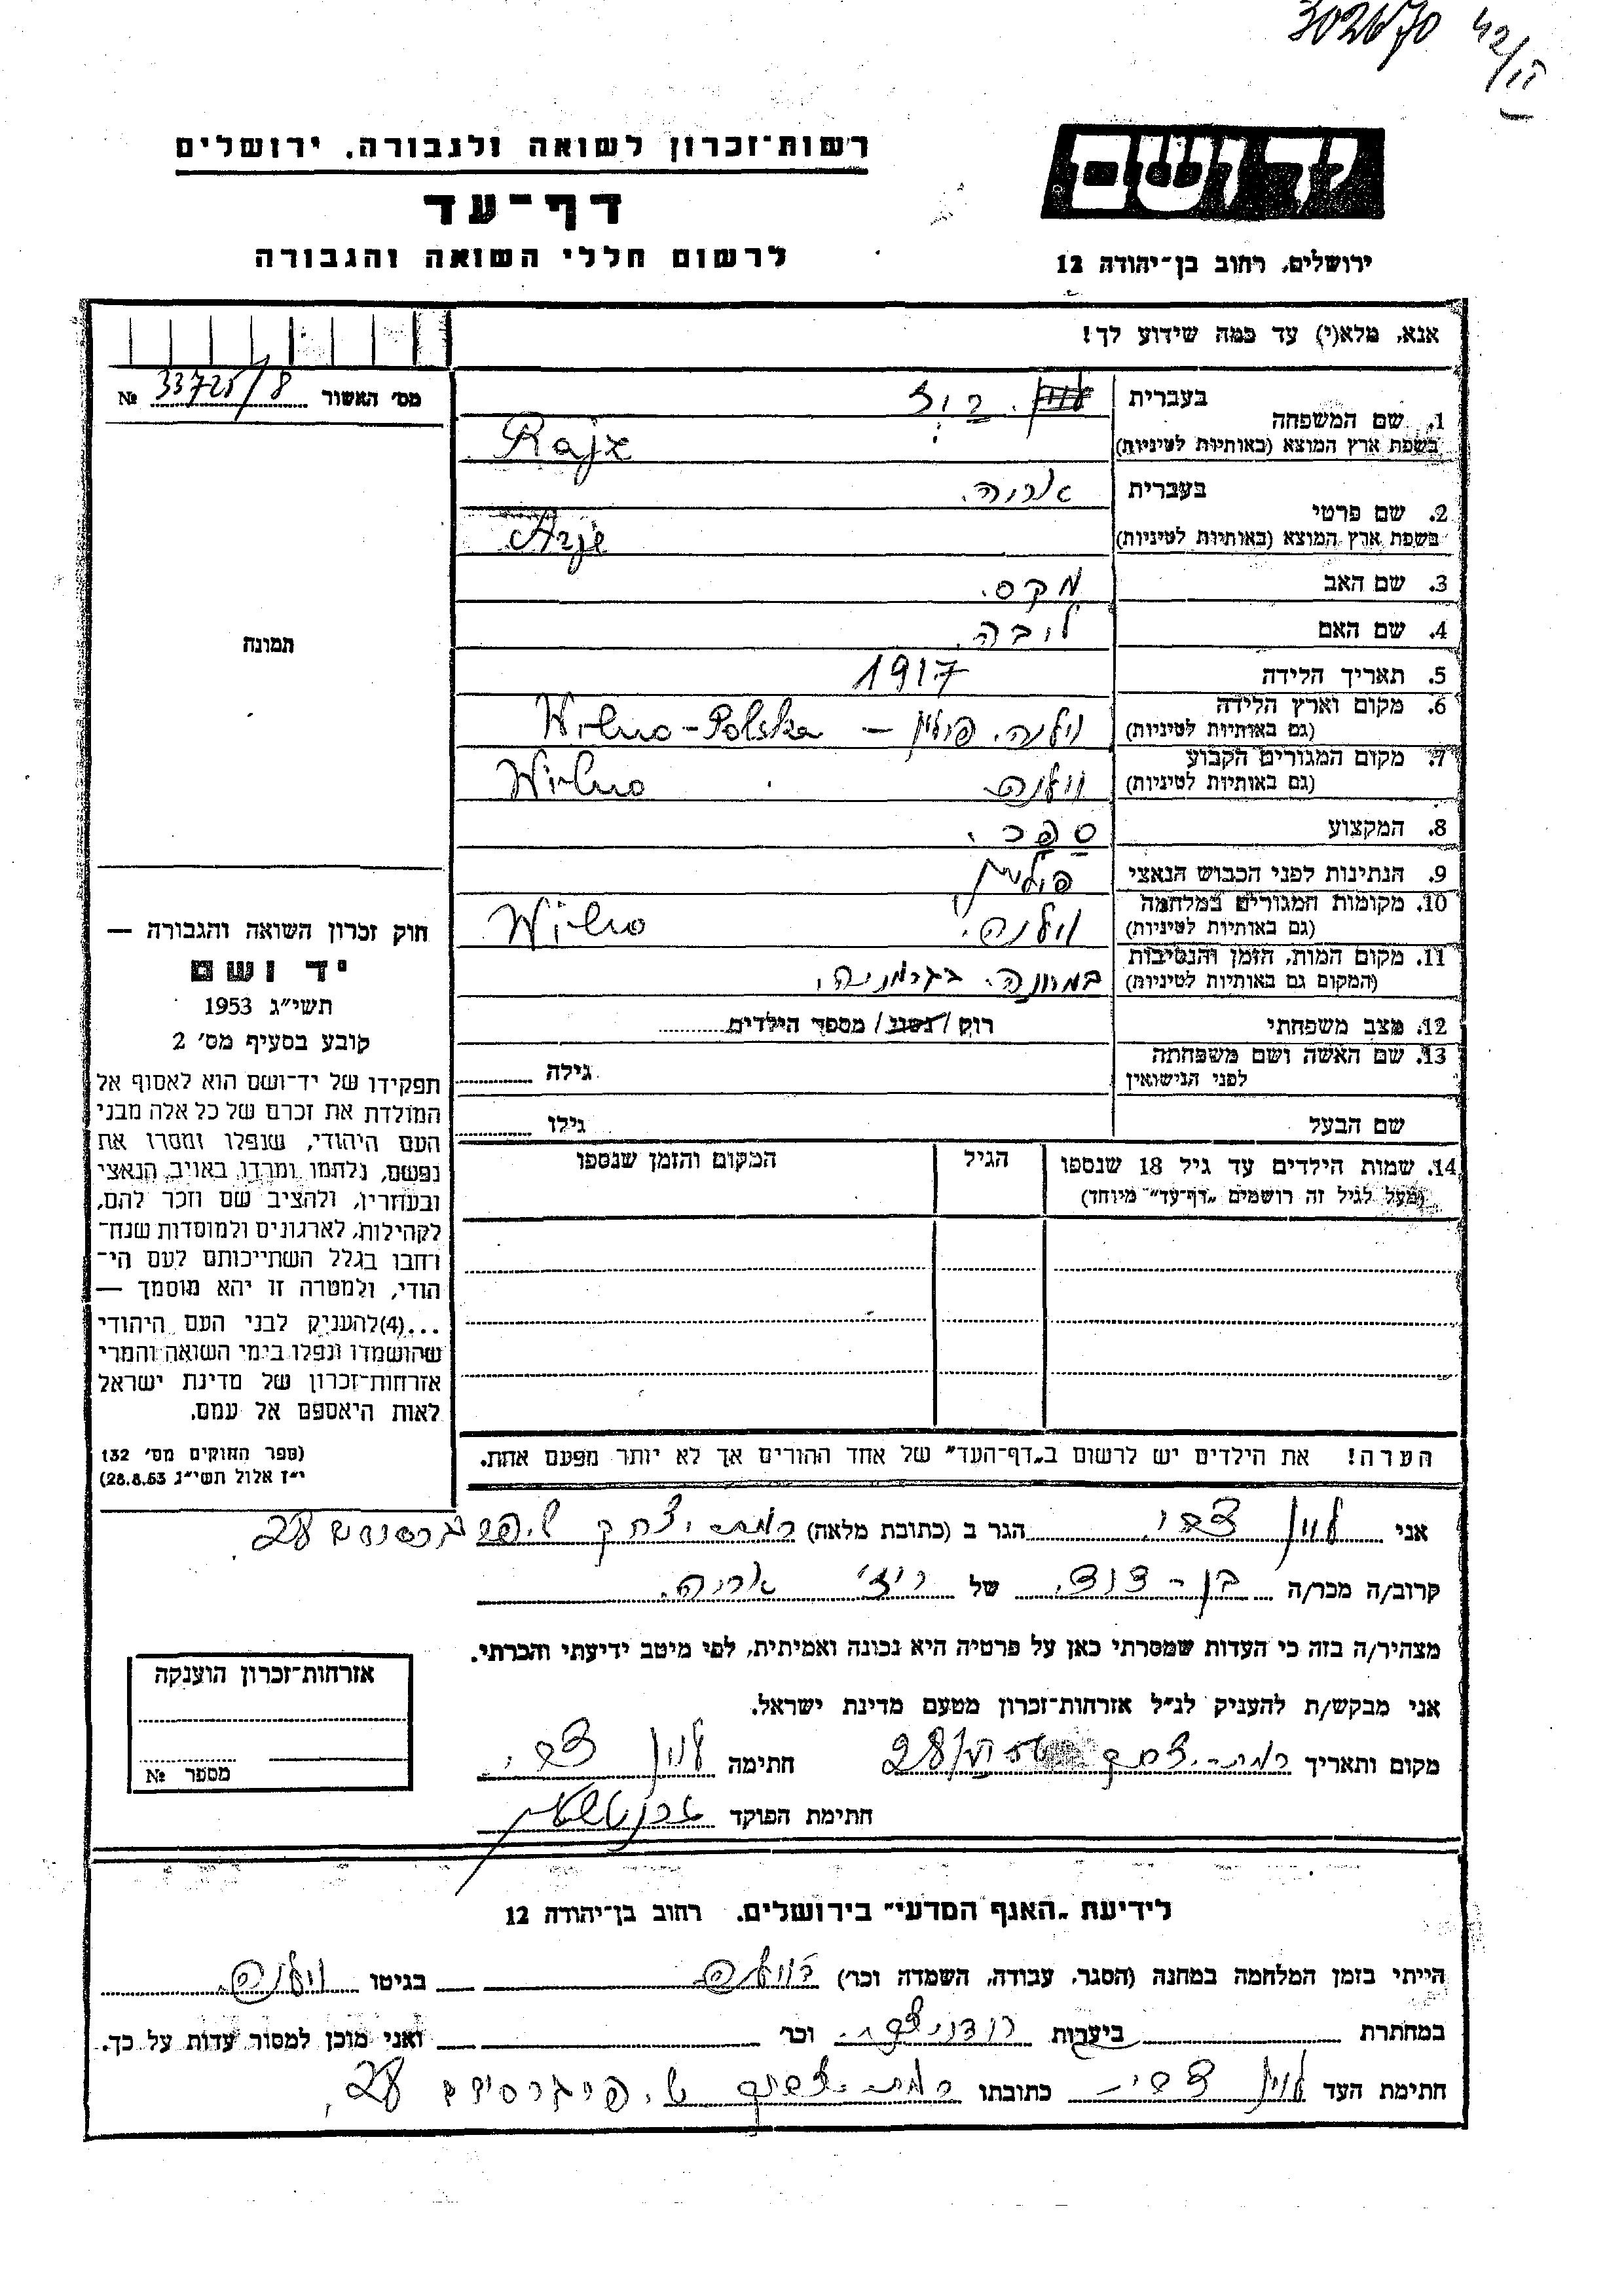 302670
רשות־זכרון לשואה ולגבורה, ירושלים
דף־עד
לרשום חללי השואה והגבורה
יד ושם
ירושלים, רחוב בן־יהודה 12
אנא, מלא(י) עד כמה שידוע לך!
מס׳ האשור 33725/8 №
תמונה
1. שם המשפחה
בעברית
בשפת ארץ המוצא (באותיות לטיניות) Rajz
2. שם פרטי
בעברית אריה.
בשפת ארץ המוצא (באותיות לטיניות) Arje
3. שם האב מקס.
4. שם האם ליבה
5. תאריך הלידה 1917
6. מקום וארץ הלידה
(גם באותיות לטיניות) וילנה. פולין – Wilno-Polska
7. מקום המגורים הקבוע
(גם באותיות לטיניות) וילנה Wilno
8. המקצוע ספר.
9. הנתינות לפני הכבוש הנאצי פולנית
10. מקומות המגורים במלחמה
(גם באותיות לטיניות) וילנה. Wilno
11. מקום המות, הזמן והנסיבות
(המקום גם באותיות לטיניות) במחנה. בגרמניה.
12. מצב משפחתי רוק/נשוי/ מספר הילדים
13. שם האשה ושם משפחתה
לפני הנישואין גילה
שם הבעל גילו
14. שמות הילדים עד גיל 18 שנספו
(מעל לגיל זה רושמים „דף־עד״ מיוחד)
הגיל
המקום והזמן שנספו
הערה! את הילדים יש לרשום ב„דף־העד״ של אחד ההורים אך לא יותר מפעם אחת.
חוק זכרון השואה והגבורה —
יד ושם
תשי״ג 1953
קובע בסעיף מס׳ 2
תפקידו של יד־ושם הוא לאסוף אל
המולדת את זכרם של כל אלה מבני
העם היהודי, שנפלו ומסרו את
נפשם, נלחמו ומרדו באויב הנאצי
ובעוזריו, ולהציב שם וזכר להם,
לקהילות, לארגונים ולמוסדות שנח־
רחבו בגלל השתייכותם לעם הי־
הודי, ולמטרה זו יהא מוסמך —
...(4)להעניק לבני העם היהודי
שהושמדו ונפלו בימי השואה והמרי
אזרחות־זכרון של מדינת ישראל
לאות היאספם אל עמם.
(ספר החוקים מס׳ 132
י״ז אלול תשי״ג 28.8.53)
אני לוין צבי. הגר ב (כתובת מלאה) רמת יצחק
קרוב/ה מכר/ה בן-דוד. של ריז׳ אריה.
מצהיר/ה בזה כי העדות שמסרתי כאן על פרטיה היא נכונה ואמיתית, לפי מיטב ידיעתי והכרתי.
אני מבקש/ת להעניק לנ״ל אזרחות־זכרון מטעם מדינת ישראל.
מקום ותאריך רמת-יצחק חתימה לוין צבי.
חתימת הפוקד
אזרחות־זכרון הוענקה
מספר №
לידיעת „האגף המדעי״ בירושלים, רחוב בן־יהודה 12
הייתי בזמן המלחמה במחנה (הסגר, עבודה, השמדה וכו׳) בגיטו וילנה.
במחתרת ביערות רודניצקי. וכו׳ ואני מוכן למסור עדות על כך.
חתימת העד לוין צבי כתובתו רמת-יצחק